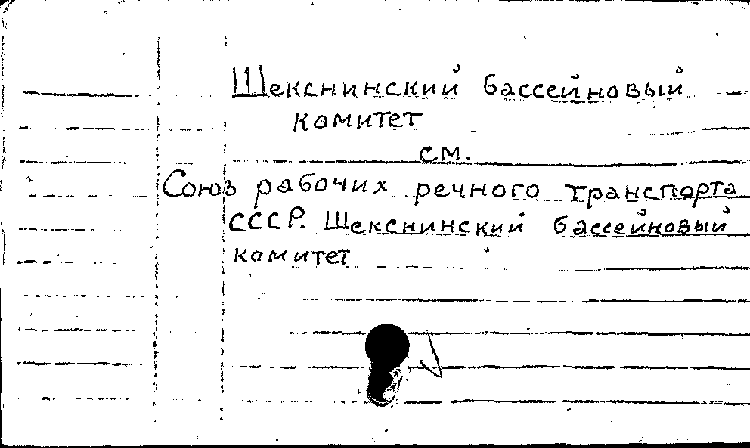 Шекснинский бассейновый
комитет
см.
Союз рабочих речного транспорта
СССР. Шекснинский бассейновый
комитет